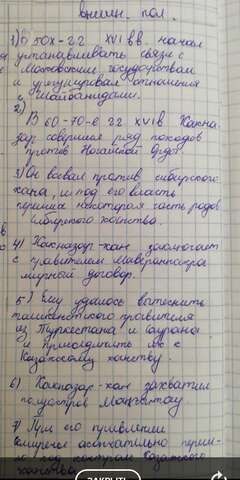 внешн. пол.
1) В 50х-гг XVI вв начал
устанавливать связи с
Московским государством
и урегулировал отношения
с Шайбанидами.
2)
В 60-70-е гг XVI в. Хакна-
зар совершил ряд походов
против Ногайской Орды.
3) Он воевал против сибирского
хана, и под его власть
перешла некоторая часть родов
сибирского ханства.
4) Хакназар-хан заключает
с правителем Мавераннахра
мирный договор.
5) Ему удалось вытеснить
ташкентского правителя
из Туркестана и Саурана
и присоединить их к
Казахскому ханству.
6) Хакназар-хан захватил
полуостров Мангыстау.
7) При его правлении
окончательно переш-
ло под контроль Казахского
ханства
ЗАКРЫТЬ